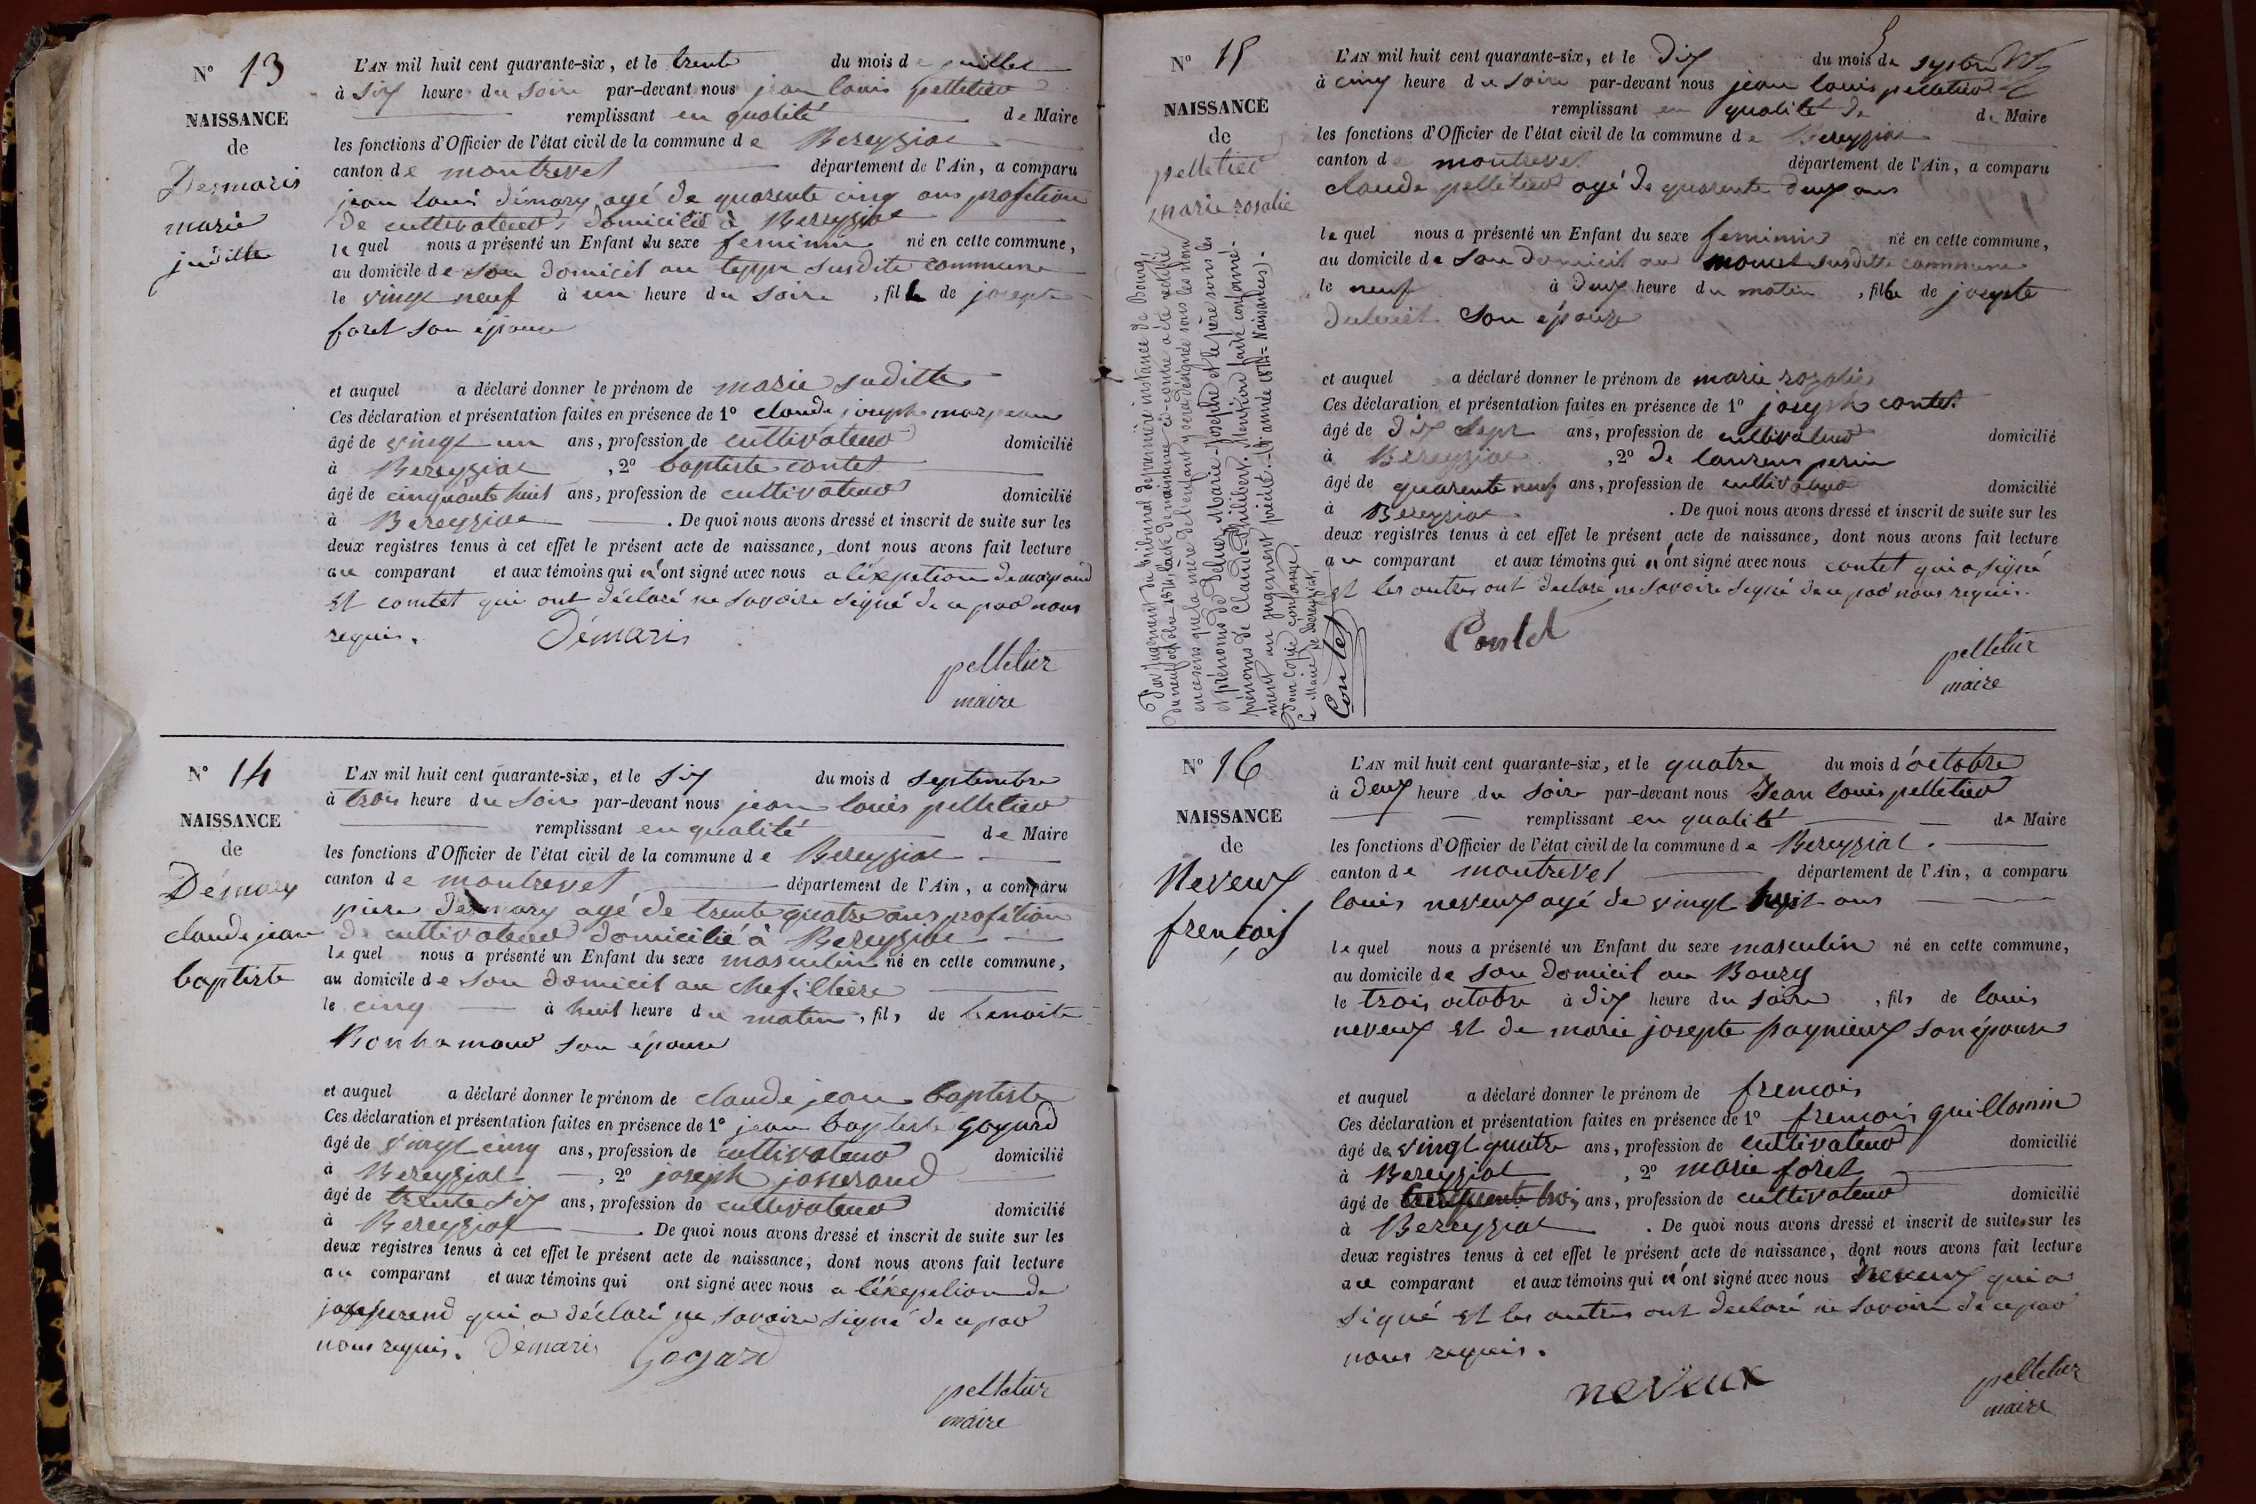 N° 13
NAISSANCE
de
Desmaris
marie
juditte
L'AN mil huit cent quarante-six, et le trente du mois de juillet
à six heure du soire par-devant nous jean louis pelletier
remplissant en qualité de Maire
les fonctions d'Officier de l'état civil de la commune de Bereyziat
canton de montrevel département de l'Ain, a comparu
jean louis démary agé de quarente cinq ans profetion
de cultivateur domicilié à Bereyziat
le quel nous a présenté un Enfant du sexe feminin né en cette commune,
au domicile de son domicil au teppe susdite commune
le vingt neuf à un heure du soire, fille de josepte
foret son épouse
et auquel a déclaré donner le prénom de marie juditte
Ces déclaration et présentation faites en présence de 1° claude joseph
âgé de vingt un ans, profession de cultivateur domicilié
à Bereyziat, 2° baptiste contet
âgé de cinquante huit ans, profession de cultivateur domicilié
à Bereyziat. De quoi nous avons dressé et inscrit de suite sur les
deux registres tenus à cet effet le présent acte de naissance, dont nous avons fait lecture
au comparant et aux témoins qui n'ont signé avec nous a l'éxeption de
et comtet qui ont déclaré ne savoire signé de ce par nous
requis. Démaris
pelletier
maire
N° 14
NAISSANCE
de
Démary
claude jean
baptiste
L'AN mil huit cent quarante-six, et le six du mois d septembre
à trois heure du soire par-devant nous jean louis pelletier
remplissant en qualité de Maire
les fonctions d'Officier de l'état civil de la commune de Bereyziat
canton de montrevel département de l'Ain, a comparu
piere démary agé de trente quatre ans profetion
de cultivateur domicilié à Bereyziat
le quel nous a présenté un Enfant du sexe masculin né en cette commune,
au domicile de son domicil au
le cinq à huit heure du matin, fils de benoite
Bonhomour son épouse
et auquel a déclaré donner le prénom de claude jean baptiste
Ces déclaration et présentation faites en présence de 1° jean baptiste goyard
âgé de vingt cinq ans, profession de cultivateur domicilié
à Bereyziat, 2° joseph josserand
âgé de trente six ans, profession de cultivateur domicilié
à Bereyziat. De quoi nous avons dressé et inscrit de suite sur les
deux registres tenus à cet effet le présent acte de naissance, dont nous avons fait lecture
au comparant et aux témoins qui ont signé avec nous a l'éxepetion de
josserend qui a déclaré ne savoire signé de ce par
nous requis. Démaris Goyard
pelletier
maire
5
N° 15
NAISSANCE
de
pelletier
marie rosalie
L'AN mil huit cent quarante-six, et le dix du mois de
à cinq heure du soire par-devant nous jean louis pelletier
remplissant en qualité de de Maire
les fonctions d'Officier de l'état civil de la commune de Bereyziat
canton de montrevel département de l'Ain, a comparu
claude pelletier agé de quarente deux ans
le quel nous a présenté un Enfant du sexe feminin né en cette commune,
au domicile de son domicil au susditte commune
le neuf à deux heure du matin, fille de josepte
son épouse
et auquel a déclaré donner le prénom de marie rozalie
Ces déclaration et présentation faites en présence de 1° joseph contet
âgé de dix sept ans, profession de cultivateur domicilié
à Bereyziat, 2° de laurens perin
âgé de quarente neuf ans, profession de cultivateur domicilié
à Bereyziat. De quoi nous avons dressé et inscrit de suite sur les
deux registres tenus à cet effet le présent acte de naissance, dont nous avons fait lecture
au comparant et aux témoins qui n'ont signé avec nous contet qui a signé
et les autres ont declaré ne savoire signé de ce par nous requis.
Contet
pelletier
maire
Par jugement du tribunal de première instance de Bourg,
du neuf octobre 1874, l'acte de naissance ci-contre a été rectifié
en ce sens que la mère de l'enfant y sera désignée sous les nom
et prénoms de Marie-Josephe et le père sous les
prénoms de Claude Philibert. Mention faite conformé-
ment au jugement précité. (Vr année 1874 = Naissances).
Pour copie conforme,
Le Maire de Béréyziat,
Contet
N° 16
NAISSANCE
de
Neveux
frencois
L'AN mil huit cent quarante-six, et le quatre du mois d'octobre
à deux heure du soire par-devant nous Jean louis pelletier
remplissant en qualité de Maire
les fonctions d'Officier de l'état civil de la commune de Bereyziat.
canton de montrevel département de l'Ain, a comparu
louis neveux agé de vingt huit ans
le quel nous a présenté un Enfant du sexe masculin né en cette commune,
au domicile de son domicil au Bourg
le trois octobre à dix heure du soire, fils de louis
neveux et de marie josepte pagnieux son épouse
et auquel a déclaré donner le prénom de frencois
Ces déclaration et présentation faites en présence de 1° frencois guillomin
âgé de vingt quatre ans, profession de cultivateur domicilié
à Bereyziat, 2° marie foret
âgé de ans, profession de cultivateur domicilié
à Bereyziat. De quoi nous avons dressé et inscrit de suite sur les
deux registres tenus à cet effet le présent acte de naissance, dont nous avons fait lecture
au comparant et aux témoins qui n'ont signé avec nous neveux qui a
signé et les autres ont declaré ne savoire de ce par
nous requis.
neveux
pelletier
maire